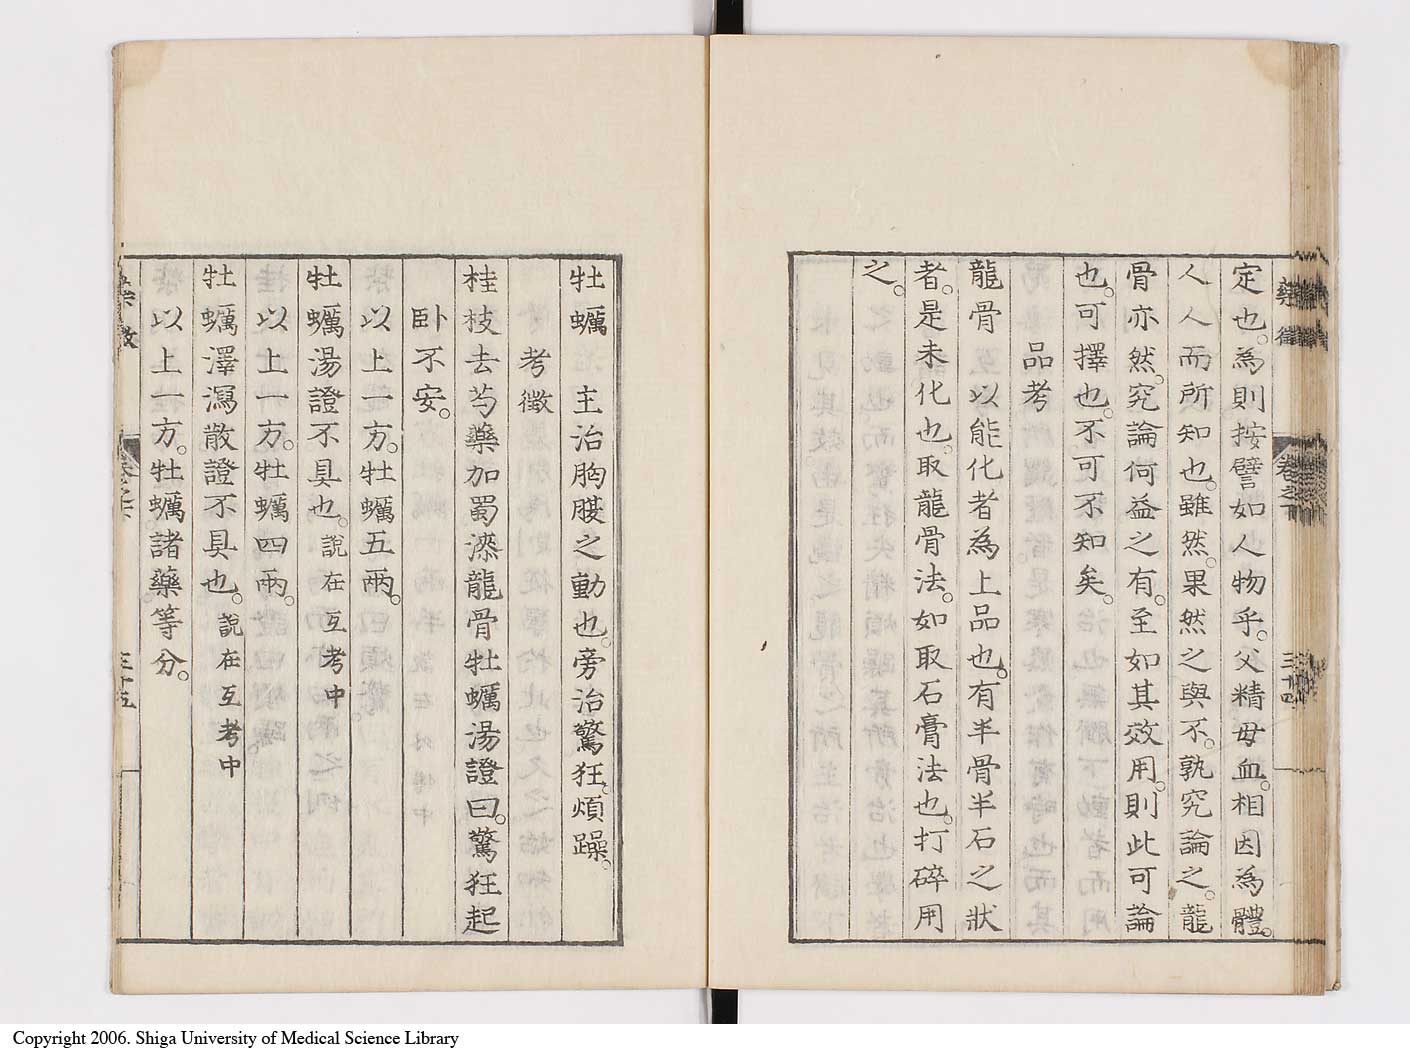 藥徵 卷之下 三十四
定也。為則按譬如人物乎。父精母血。相因為體。
人人而所知也。雖然。果然之與不。孰究論之。龍
骨亦然。究論何益之有。至如其效用。則此可論
也。可擇也。不可不知矣。
品考
龍骨 以能化者為上品也。有半骨半石之狀
者。是未化也。取龍骨法。如取石膏法也。打碎用
之。
牡蠣 主治胸腹之動也。旁治驚狂。煩躁。
考徵
桂枝去芍藥加蜀漆龍骨牡蠣湯證曰。驚狂起
卧不安。
以上一方。牡蠣五兩。
牡蠣湯證不具也。說在互考中
以上一方。牡蠣四兩。
牡蠣澤瀉散證不具也。說在互考中
以上一方。牡蠣諸藥等分。
三十五
Copyright 2006. Shiga University of Medical Science Library